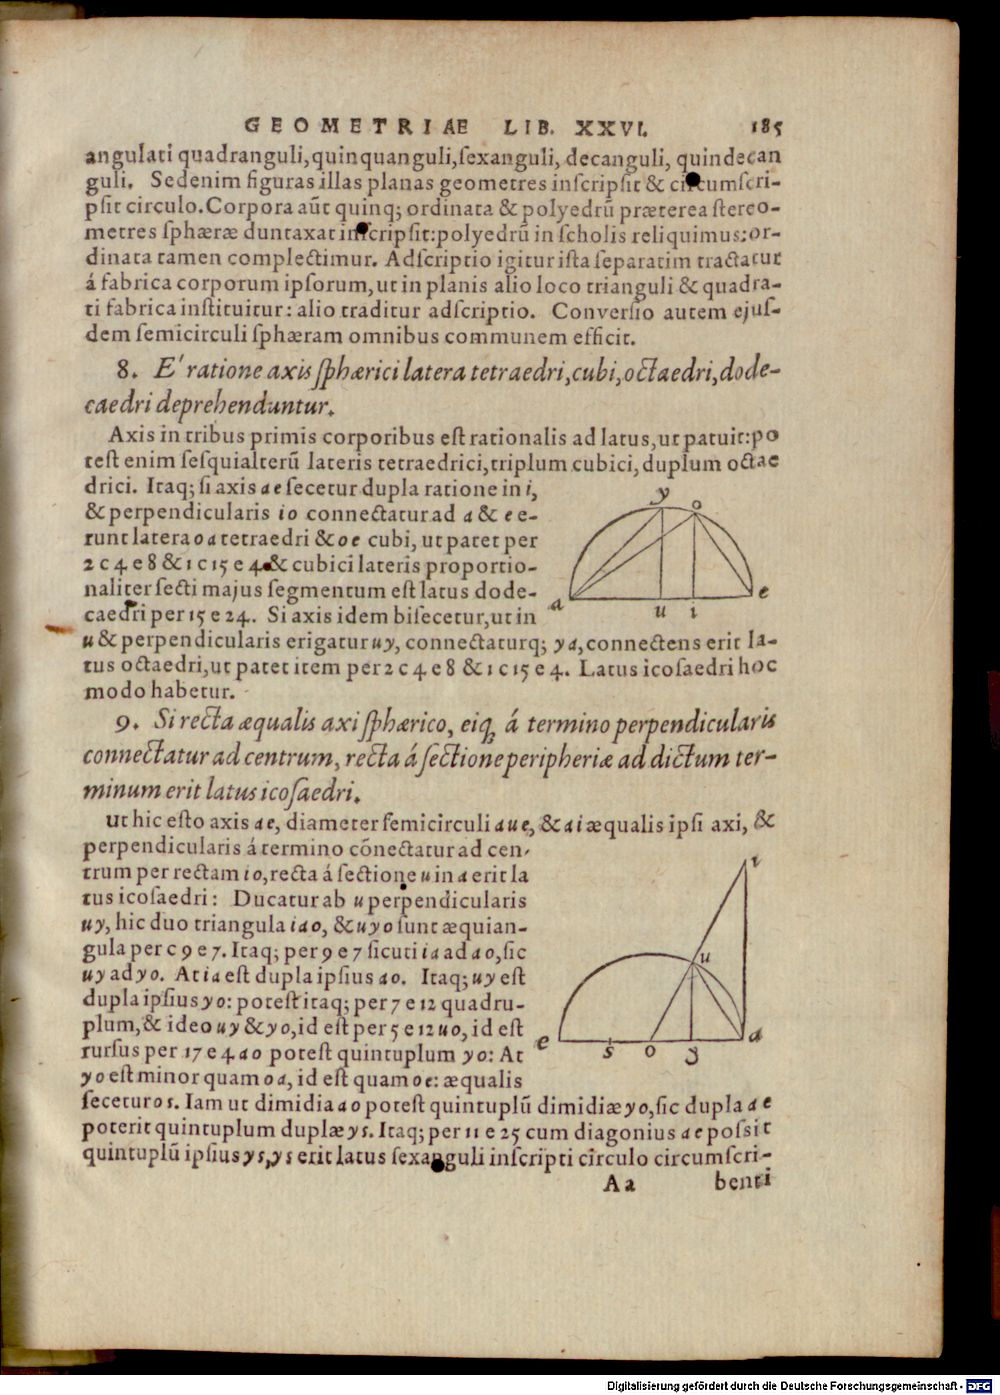 GEOMETRIÆ LIB. XXVI. 185
angulati quadranguli, quinquanguli, sexanguli, decanguli, quindecan
guli. Sedenim figuras illas planas geometres inscripsit & circumscri-
psit circulo. Corpora aũt quinq; ordinata & polyedrũ præterea stereo-
metres sphæræ duntaxat inscripsit: polyedrũ in scholis reliquimus: or-
dinata tamen complectimur. Adscriptio igitur ista separatim tractatur
á fabrica corporum ipsorum, ut in planis alio loco trianguli & quadra-
ti fabrica instituitur: alio traditur adscriptio. Conversio autem ejus-
dem semicirculi sphæram omnibus communem efficit.
8. E' ratione axis sphærici latera tetraedri, cubi, octaedri, dode-
caedri deprehenduntur.
Axis in tribus primis corporibus est rationalis ad latus, ut patuit: po
test enim sesquialterũ lateris tetraedrici, triplum cubici, duplum octae
drici. Itaq; si axis ae secetur dupla ratione in i,
& perpendicularis io connectatur ad a & e e-
runt latera oa tetraedri & oe cubi, ut patet per
2 c 4 e 8 & 1 c 15 e 4. & cubici lateris proportio-
naliter secti majus segmentum est latus dode-
caedri per 15 e 24. Si axis idem bisecetur, ut in
u & perpendicularis erigatur uy, connectaturq; ya, connectens erit la-
tus octaedri, ut patet item per 2 c 4 e 8 & 1 c 15 e 4. Latus icosaedri hoc
modo habetur.
y o
a u i e
9. Si recta æqualis axi sphærico, eiq; á termino perpendicularis
connectatur ad centrum, recta á sectione peripheriæ ad dictum ter-
minum erit latus icosaedri.
ut hic esto axis ae, diameter semicirculi aue, & ai æqualis ipsi axi, &
perpendicularis á termino cõnectatur ad cen-
trum per rectam io, recta á sectione u in a erit la
tus icosaedri: Ducatur ab u perpendicularis
uy, hic duo triangula iao, & uyo sunt æquian-
gula per c 9 e 7. Itaq; per 9 e 7 sicuti ia ad ao, sic
uy ad yo. At ia est dupla ipsius ao. Itaq; uy est
dupla ipsius yo: potest itaq; per 7 e 12 quadru-
plum, & ideo uy & yo, id est per 5 e 12 uo, id est
rursus per 17 e 4 ao potest quintuplum yo: At
yo est minor quam oa, id est quam oe: æqualis
secetur os. Iam ut dimidia ao potest quintuplũ dimidiæ yo, sic dupla ae
poterit quintuplum duplæ ys. Itaq; per 11 e 25 cum diagonius ae possit
quintuplũ ipsius ys, ys erit latus sexanguli inscripti circulo circumscri-
i
u
e s o y a
Aa benti
Digitalisierung gefördert durch die Deutsche Forschungsgemeinschaft - DFG